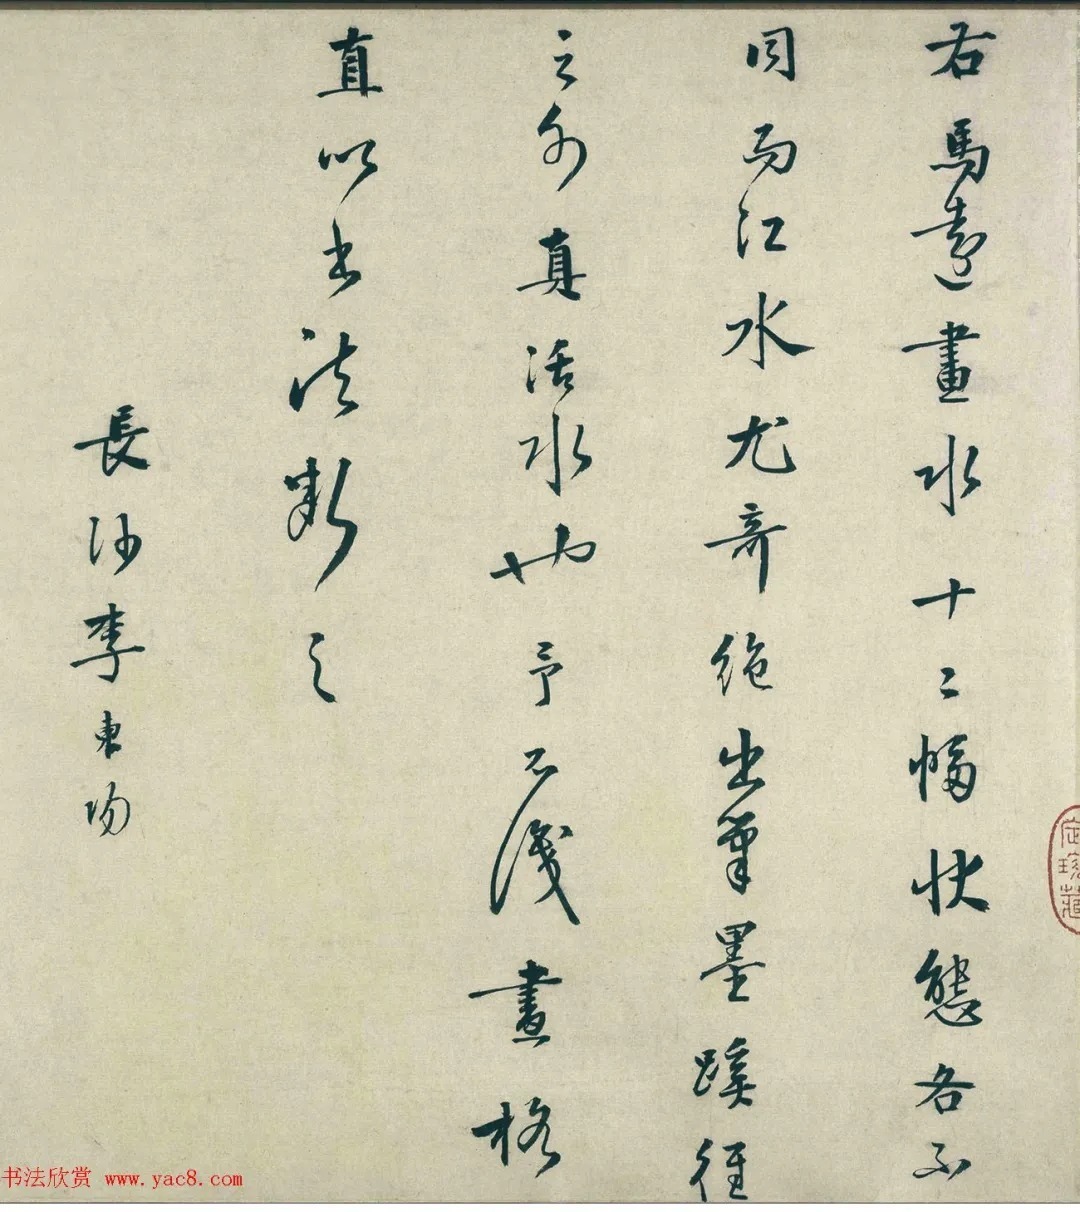 右馬遠畫水十二幅狀態各不
同而江水尤奇絶出筆墨蹊徑
之外真活水也予不識畫格
直以書法斷之
長沙李東陽
書法欣赏 www.yac8.com